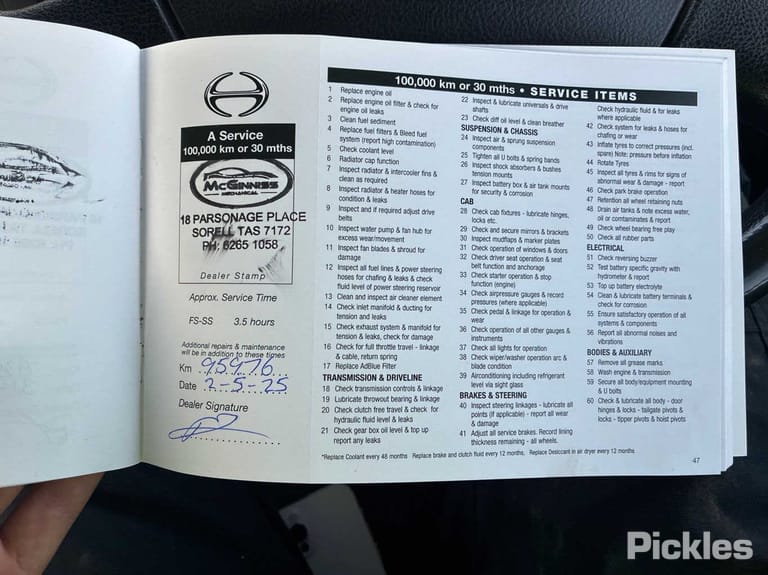 A Service
100,000 km or 30 mths
McGINNISS
MECHANICAL
18 PARSONAGE PLACE
SORELL TAS 7172
PH: 6265 1058
Dealer Stamp
Approx. Service Time
FS-SS 3.5 hours
Additional repairs & maintenance
will be in addition to these times
Km 95976
Date 2-5-25
Dealer Signature
100,000 km or 30 mths • SERVICE ITEMS
1 Replace engine oil
2 Replace engine oil filter & check for
engine oil leaks
3 Clean fuel sediment
4 Replace fuel filters & Bleed fuel
system (report high contamination)
5 Check coolant level
6 Radiator cap function
7 Inspect radiator & intercooler fins &
clean as required
8 Inspect radiator & heater hoses for
condition & leaks
9 Inspect and if required adjust drive
belts
10 Inspect water pump & fan hub for
excess wear/movement
11 Inspect fan blades & shroud for
damage
12 Inspect all fuel lines & power steering
hoses for chafing & leaks & check
fluid level of power steering reservoir
13 Clean and inspect air cleaner element
14 Check inlet manifold & ducting for
tension and leaks
15 Check exhaust system & manifold for
tension & leaks, check for damage
16 Check for full throttle travel - linkage
& cable, return spring
17 Replace AdBlue Filter
TRANSMISSION & DRIVELINE
18 Check transmission controls & linkage
19 Lubricate throwout bearing & linkage
20 Check clutch free travel & check for
hydraulic fluid level & leaks
21 Check gear box oil level & top up
report any leaks
22 Inspect & lubricate universals & drive
shafts
23 Check diff oil level & clean breather
SUSPENSION & CHASSIS
24 Inspect air & sprung suspension
components
25 Tighten all U bolts & spring bands
26 Inspect shock absorbers & bushes
tension mounts
27 Inspect battery box & air tank mounts
for security & corrosion
CAB
28 Check cab fixtures - lubricate hinges,
locks etc.
29 Check and secure mirrors & brackets
30 Inspect mudflaps & marker plates
31 Check operation of windows & doors
32 Check driver seat operation & seat
belt function and anchorage
33 Check starter operation & stop
function (engine)
34 Check airpressure gauges & record
pressures (where applicable)
35 Check pedal & linkage for operation &
wear
36 Check operation of all other gauges &
instruments
37 Check all lights for operation
38 Check wiper/washer operation arc &
blade condition
39 Airconditioning including refrigerant
level via sight glass
BRAKES & STEERING
40 Inspect steering linkages - lubricate all
points (if applicable) - report all wear
& damage
41 Adjust all service brakes. Record lining
thickness remaining - all wheels.
Check hydraulic fluid & for leaks
where applicable
42 Check system for leaks & hoses for
chafing or wear
43 Inflate tyres to correct pressures (incl.
spare) Note: pressure before inflation
44 Rotate Tyres
45 Inspect all tyres & rims for signs of
abnormal wear & damage - report
46 Check park brake operation
47 Retention all wheel retaining nuts
48 Drain air tanks & note excess water,
oil or contaminates & report
49 Check wheel bearing free play
50 Check all rubber parts
ELECTRICAL
51 Check reversing buzzer
52 Test battery specific gravity with
hydrometer & report
53 Top up battery electrolyte
54 Clean & lubricate battery terminals &
check for corrosion
55 Ensure satisfactory operation of all
systems & components
56 Report all abnormal noises and
vibrations
BODIES & AUXILIARY
57 Remove all grease marks
58 Wash engine & transmission
59 Secure all body/equipment mounting
& U bolts
60 Check & lubricate all body - door
hinges & locks - tailgate pivots &
locks - tipper pivots & hoist pivots
*Replace Coolant every 48 months Replace brake and clutch fluid every 12 months. Replace Desiccant in air dryer every 12 months
47
Pickles